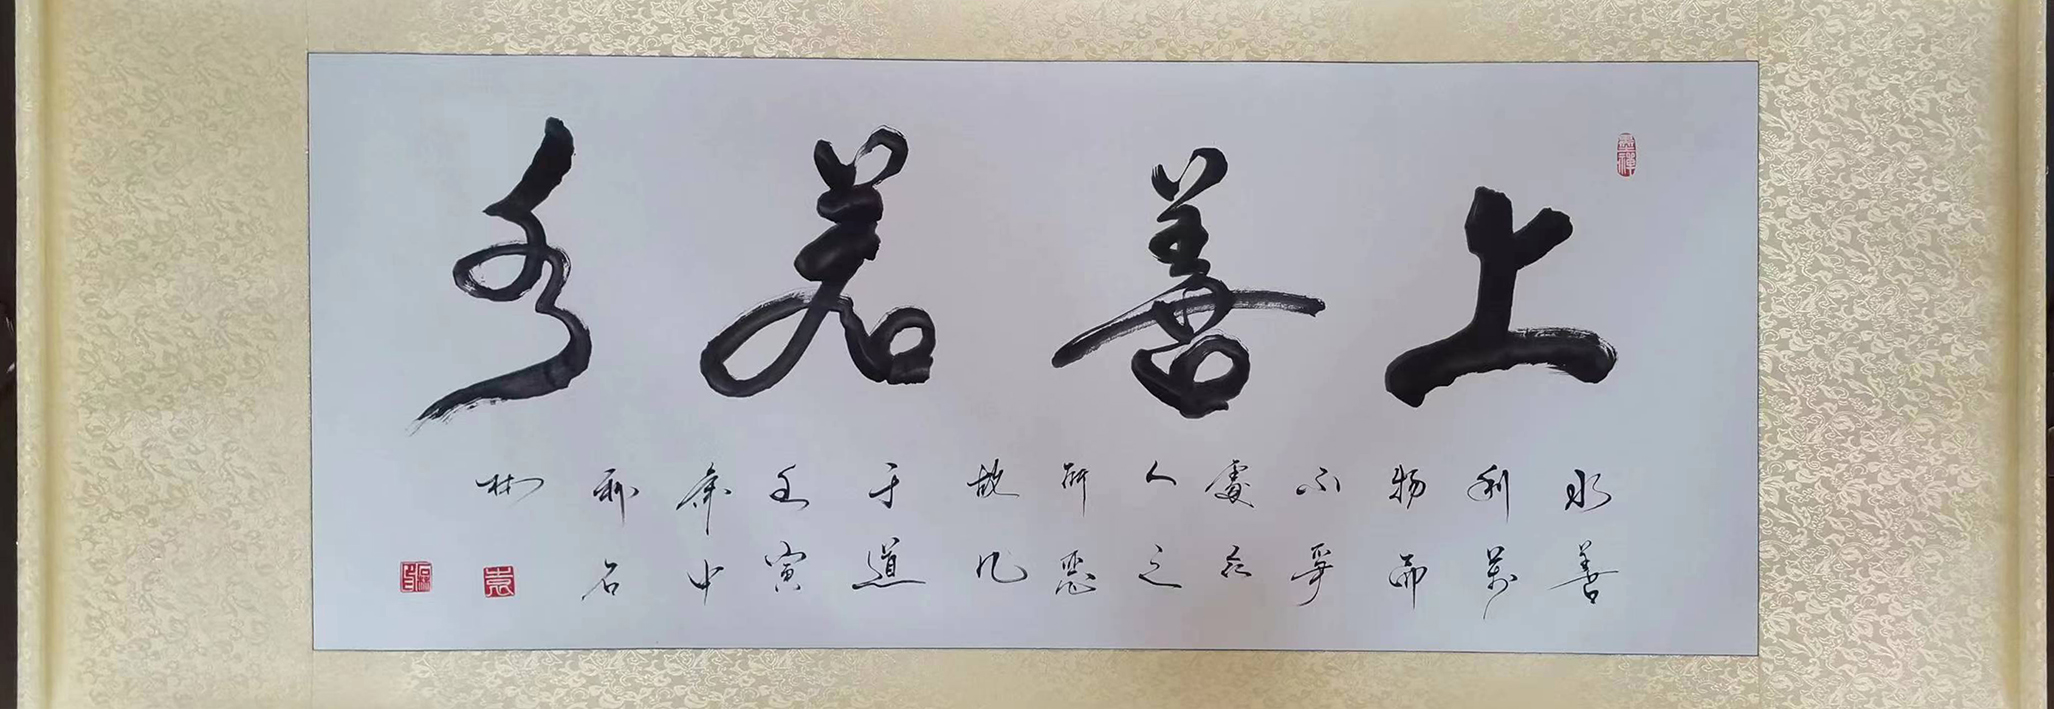 上善若水
水善
利萬
物而
不爭
處众
人之
所惡
故几
于道
壬寅
年中
秋石
彬
袁